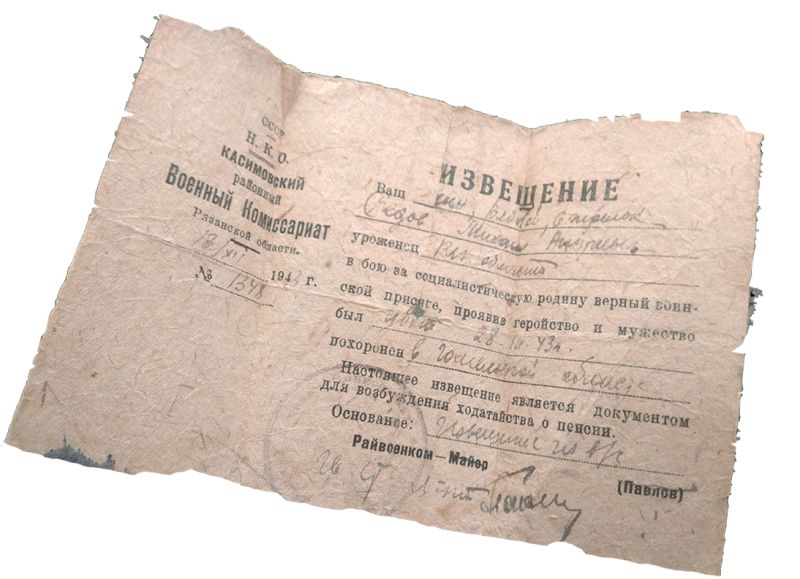 СССР
Н. К. О.
КАСИМОВСКИЙ
районный
Военный Комиссариат
Рязанской области.
13/XII 1943 г.
№ 1348
ИЗВЕЩЕНИЕ
Ваш сын, рядовой, стрелок
Седов Михаил
уроженец
в бою за социалистическую родину верный воин-
ской присяге, проявив геройство и мужество
был убит 28 43 г.
похоронен в Гомельской области
Настоящее извещение является документом
для возбуждения ходатайства о пенсии.
Основание: Извещение из в/ч
Райвоенком — Майор
(Павлов)